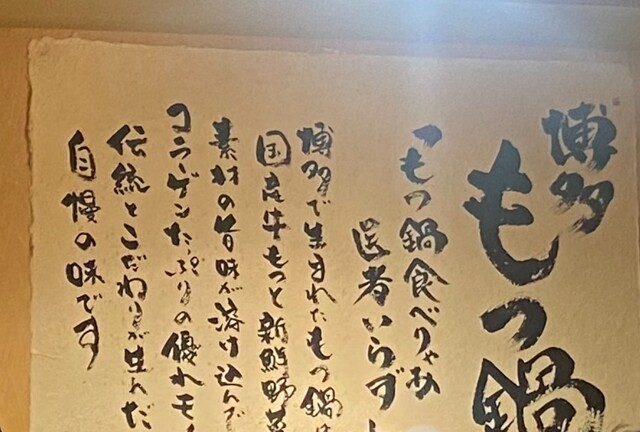 博多
もつ鍋
「もつ鍋食べりゃあ
医者いらず
博多で生まれたもつ鍋は
国産牛もつと新鮮野菜
素材の旨味が溶け込んで
コラゲンたっぷりの優れモノ
伝統とこだわりが生んだ
自慢の味です